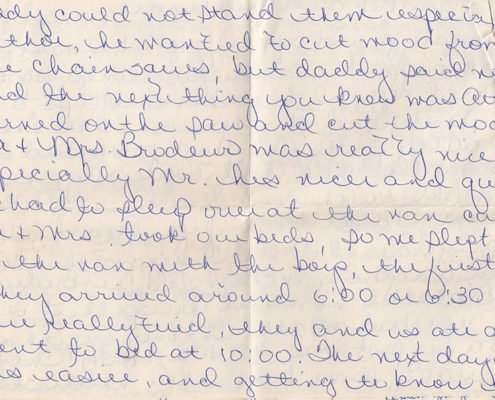 ddy could not stand them especia
thur, he wanted to cut wood from
e chainsaws, but daddy said n
d the next thing you knew was Ar
rned on the saw and cut the woo
r + Mrs. Brodeur was really nice
pecially Mr. hes nicer and qu
had to sleep over at the van ca
r + Mrs. took our beds, so me slept
the van with the boys, the first
hey arrived around 6:00 or 6:30
re really tired, they and us ate
ent to bed at 10:00. The next day
as easier, and getting to know